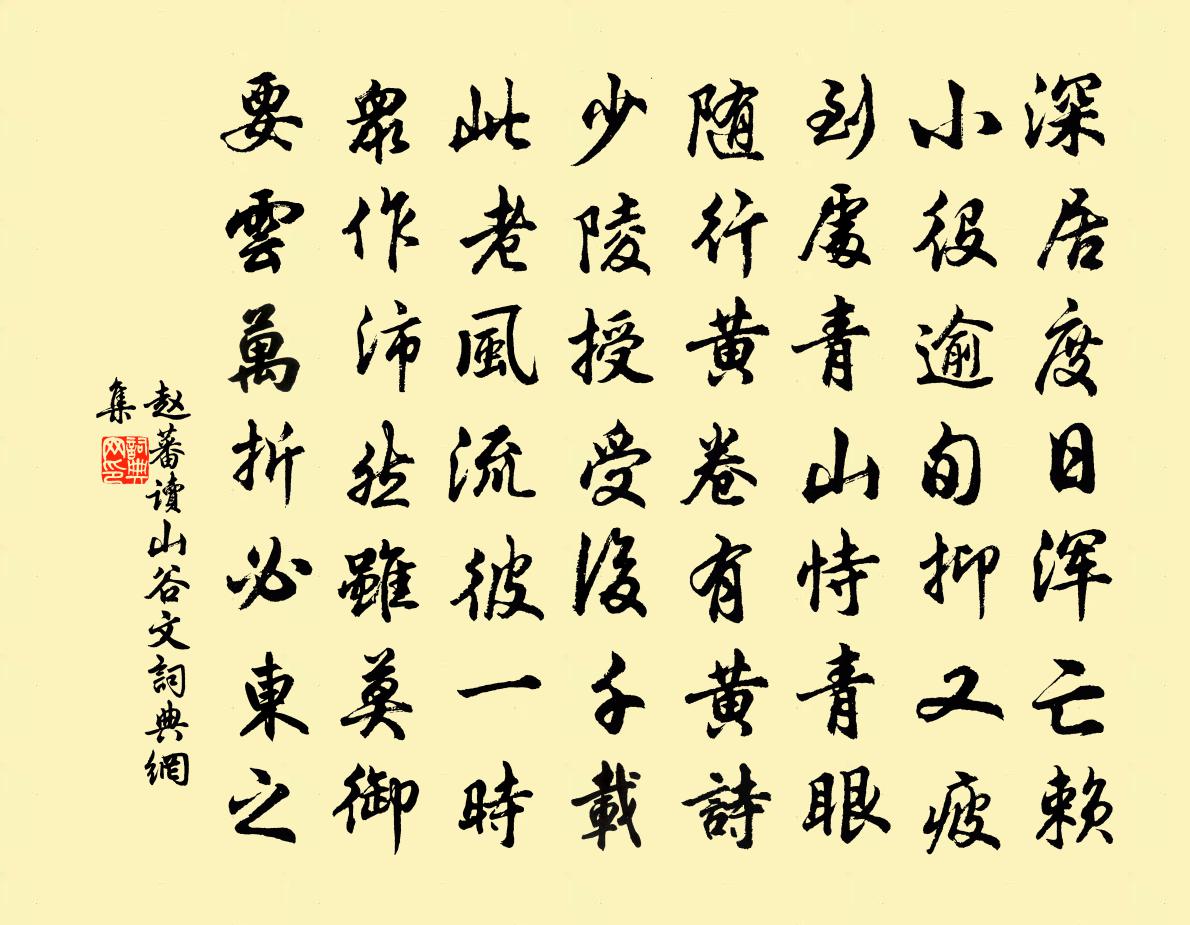 深居度日浑亡赖
小役逾旬抑又疲
到處青山恃青眼
随行黄卷有黄詩
少陵授受後千載
此老風流彼一時
衆作沛然雖莫御
要雲萬折必東之
赵蕃讀山谷文詞典網
集
詞典網印